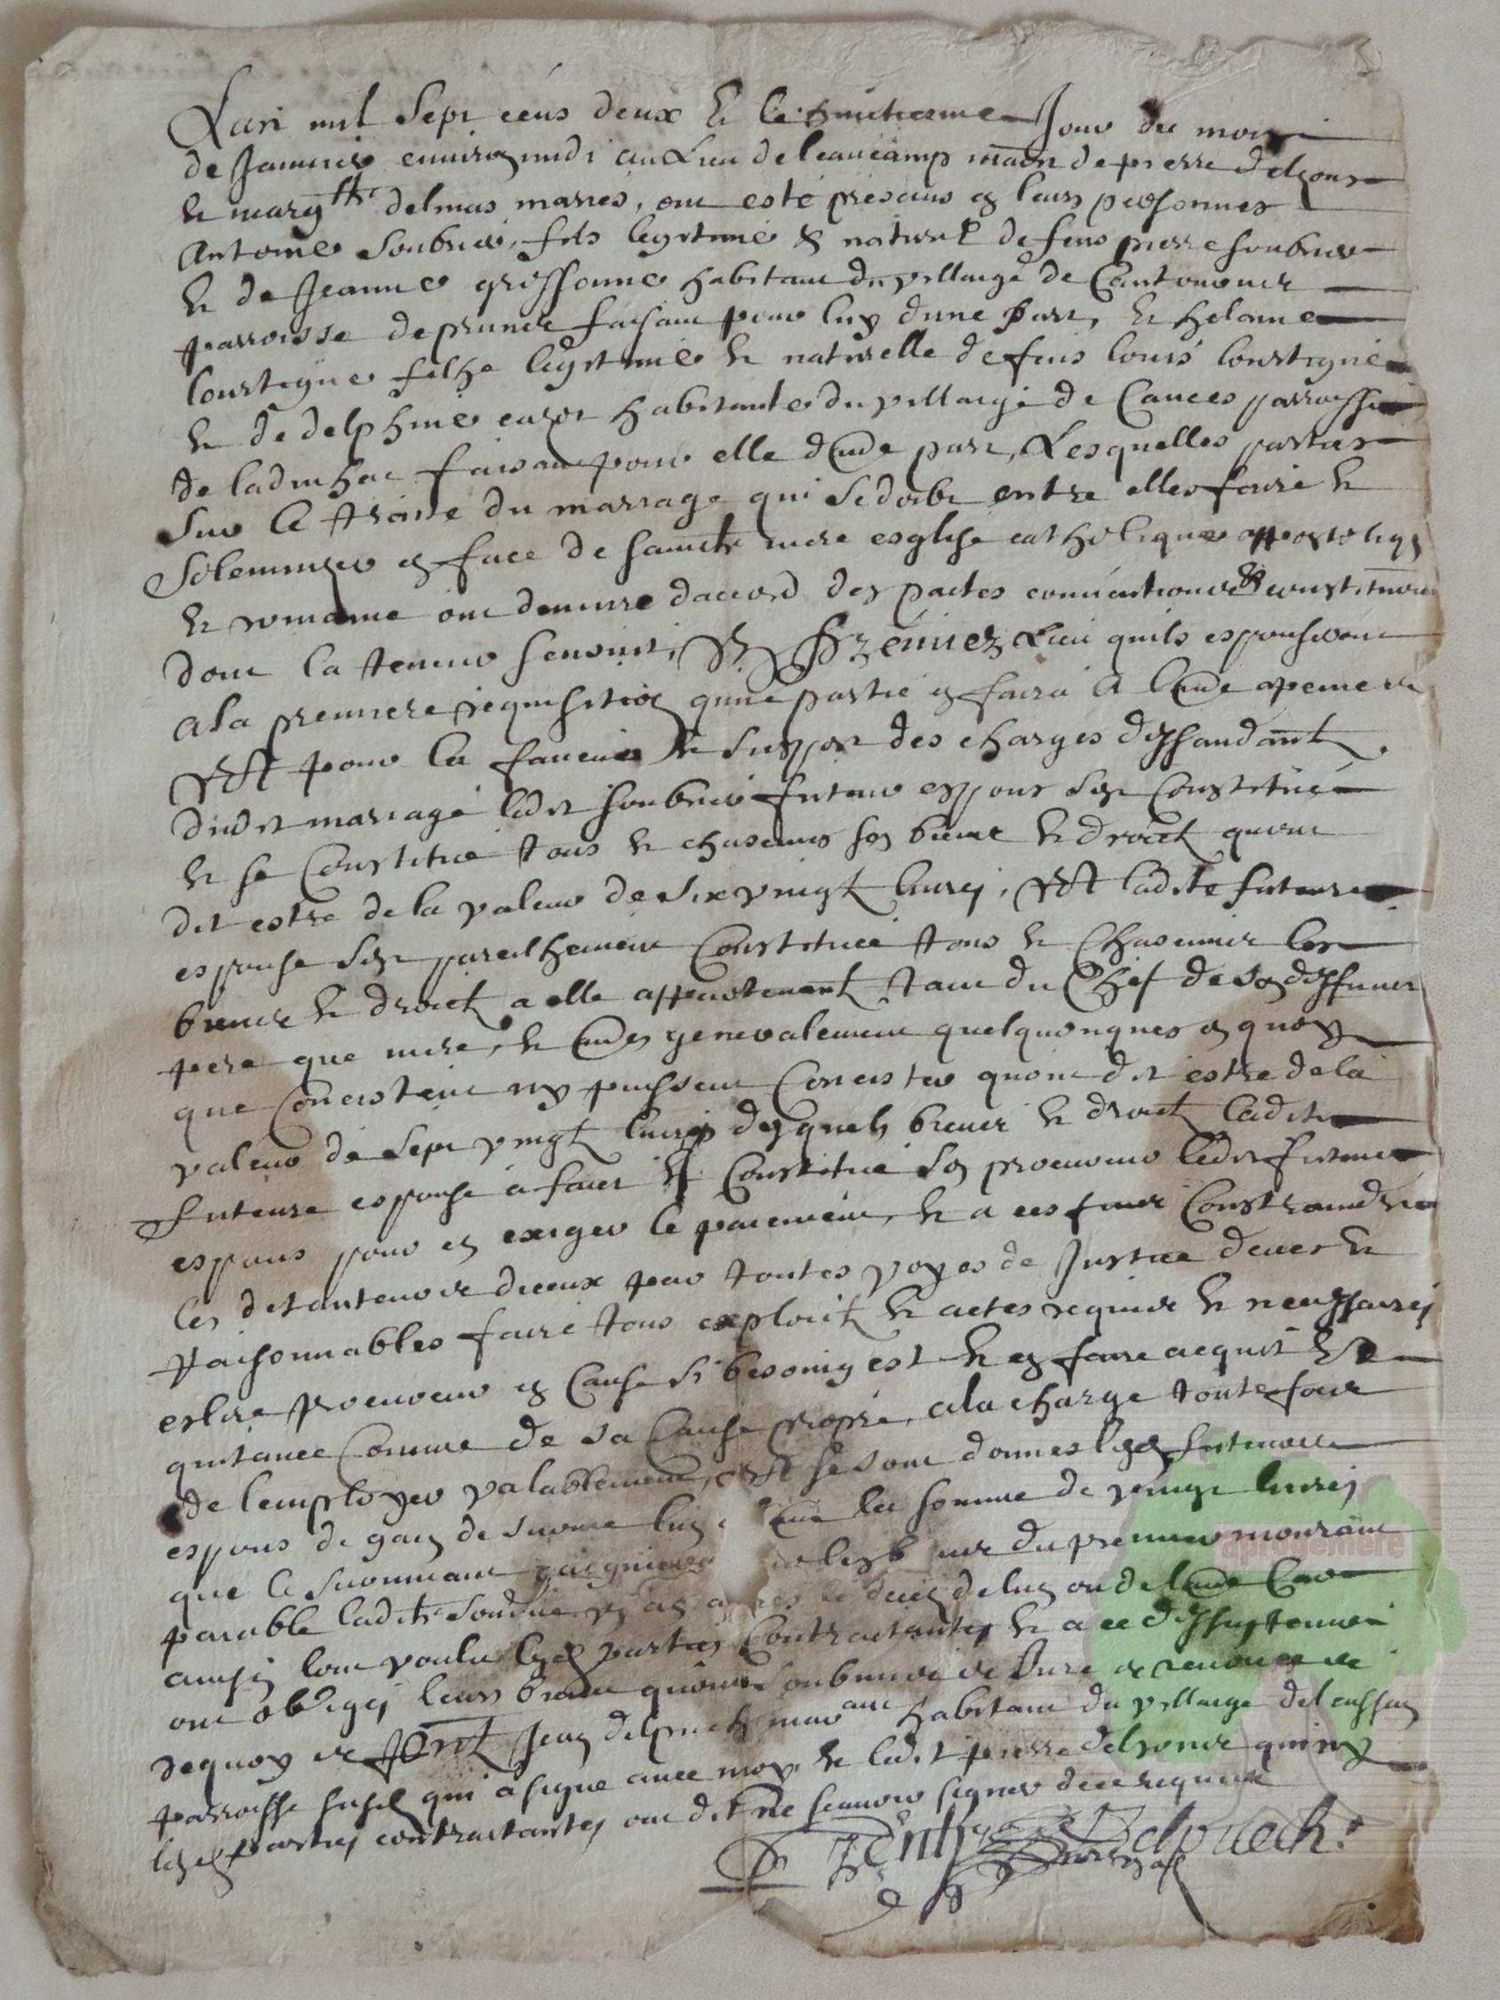 Lan mil sept cens deux & le huictiesme Jour du mois
de Janvier environ midi au Lieu de leaucamp maon de pierre delzons
& marg^tte delmas maries, ont esté presans en leurs personnes
Antoine Soubrier, fils legitime & naturel de feus pierre soubrier
& de Jeanne grissonne habitant du village de Cantouner
parroisse de prunet faisant pour luy dune part, & helaine
lourtigue filhe legitime & naturelle de feus louis lourtigue
& de delphine cazot habitante du village de Cances parroisse
de ladinhac faisant pour elle dau^e part, Lesquelles parties
sur le traité du mariage qui se doibt entre elles faire &
solempnizer en face de saincte mere esglise catholique appostolique
& romaine ont demuré daccord des pactes conventions & constitutions
dont la teneur senduit, Et premiez Lieu quils espouseront
a la premiere requisition qune partie en faira a lau^e a peine &
Et pour la faveur & suppor des charges dessandant
dudit mariage ledit soubrier futeur espous sest constitué
& se constitue tous & chascuns ses biens & droictz quont
dit estre de la valeur de six vingt livres, Et ladite futeure
espouse sest pareilhement constituée tous & chascuns les
biens & droictz a elle appartenant tant du chef de son deffunct
pere que mere, & au^es generalement quelquonques en quoy
que concistent ny puissent concister quont dit estre de la
valeur de sept vingt livres desquels biens & droictz ladite
futeure espouse a fait & constitué son procureur ledit futeur
espous pour en exiger le paiement, & a ces fins constraindre
les detanteurs diceux par toutes voyes de Justice deues &
raisonnables faire tous exploictz & actes requis & necessaires
eslire procureur en cause si besoing est & en faire acquit &
quitance comme de sa cause propre, a la charge toutefois
de lemployer valablement, Et se sont donnes lesd futeurs
espous de gain de survie lun a lau^e la somme de vingt livres
que le survivant gaignera des biens du premier mourant
payable ladite somme un an apres le deces de lun ou de lau^e Car
ainsin lont voulu lesd parties contractantes & a ce dessus tenir
ont obligés leurs biens quont soubmis & Jure & renoncé &
dequoy & font Jean delpuech marchant habitant du village del cassan
parroisse susd qui a signe avec moy & ledit pierre delzons qui ny
lesd parties contractantes ont dit ne scavoir signer de ce requis
Delpuech